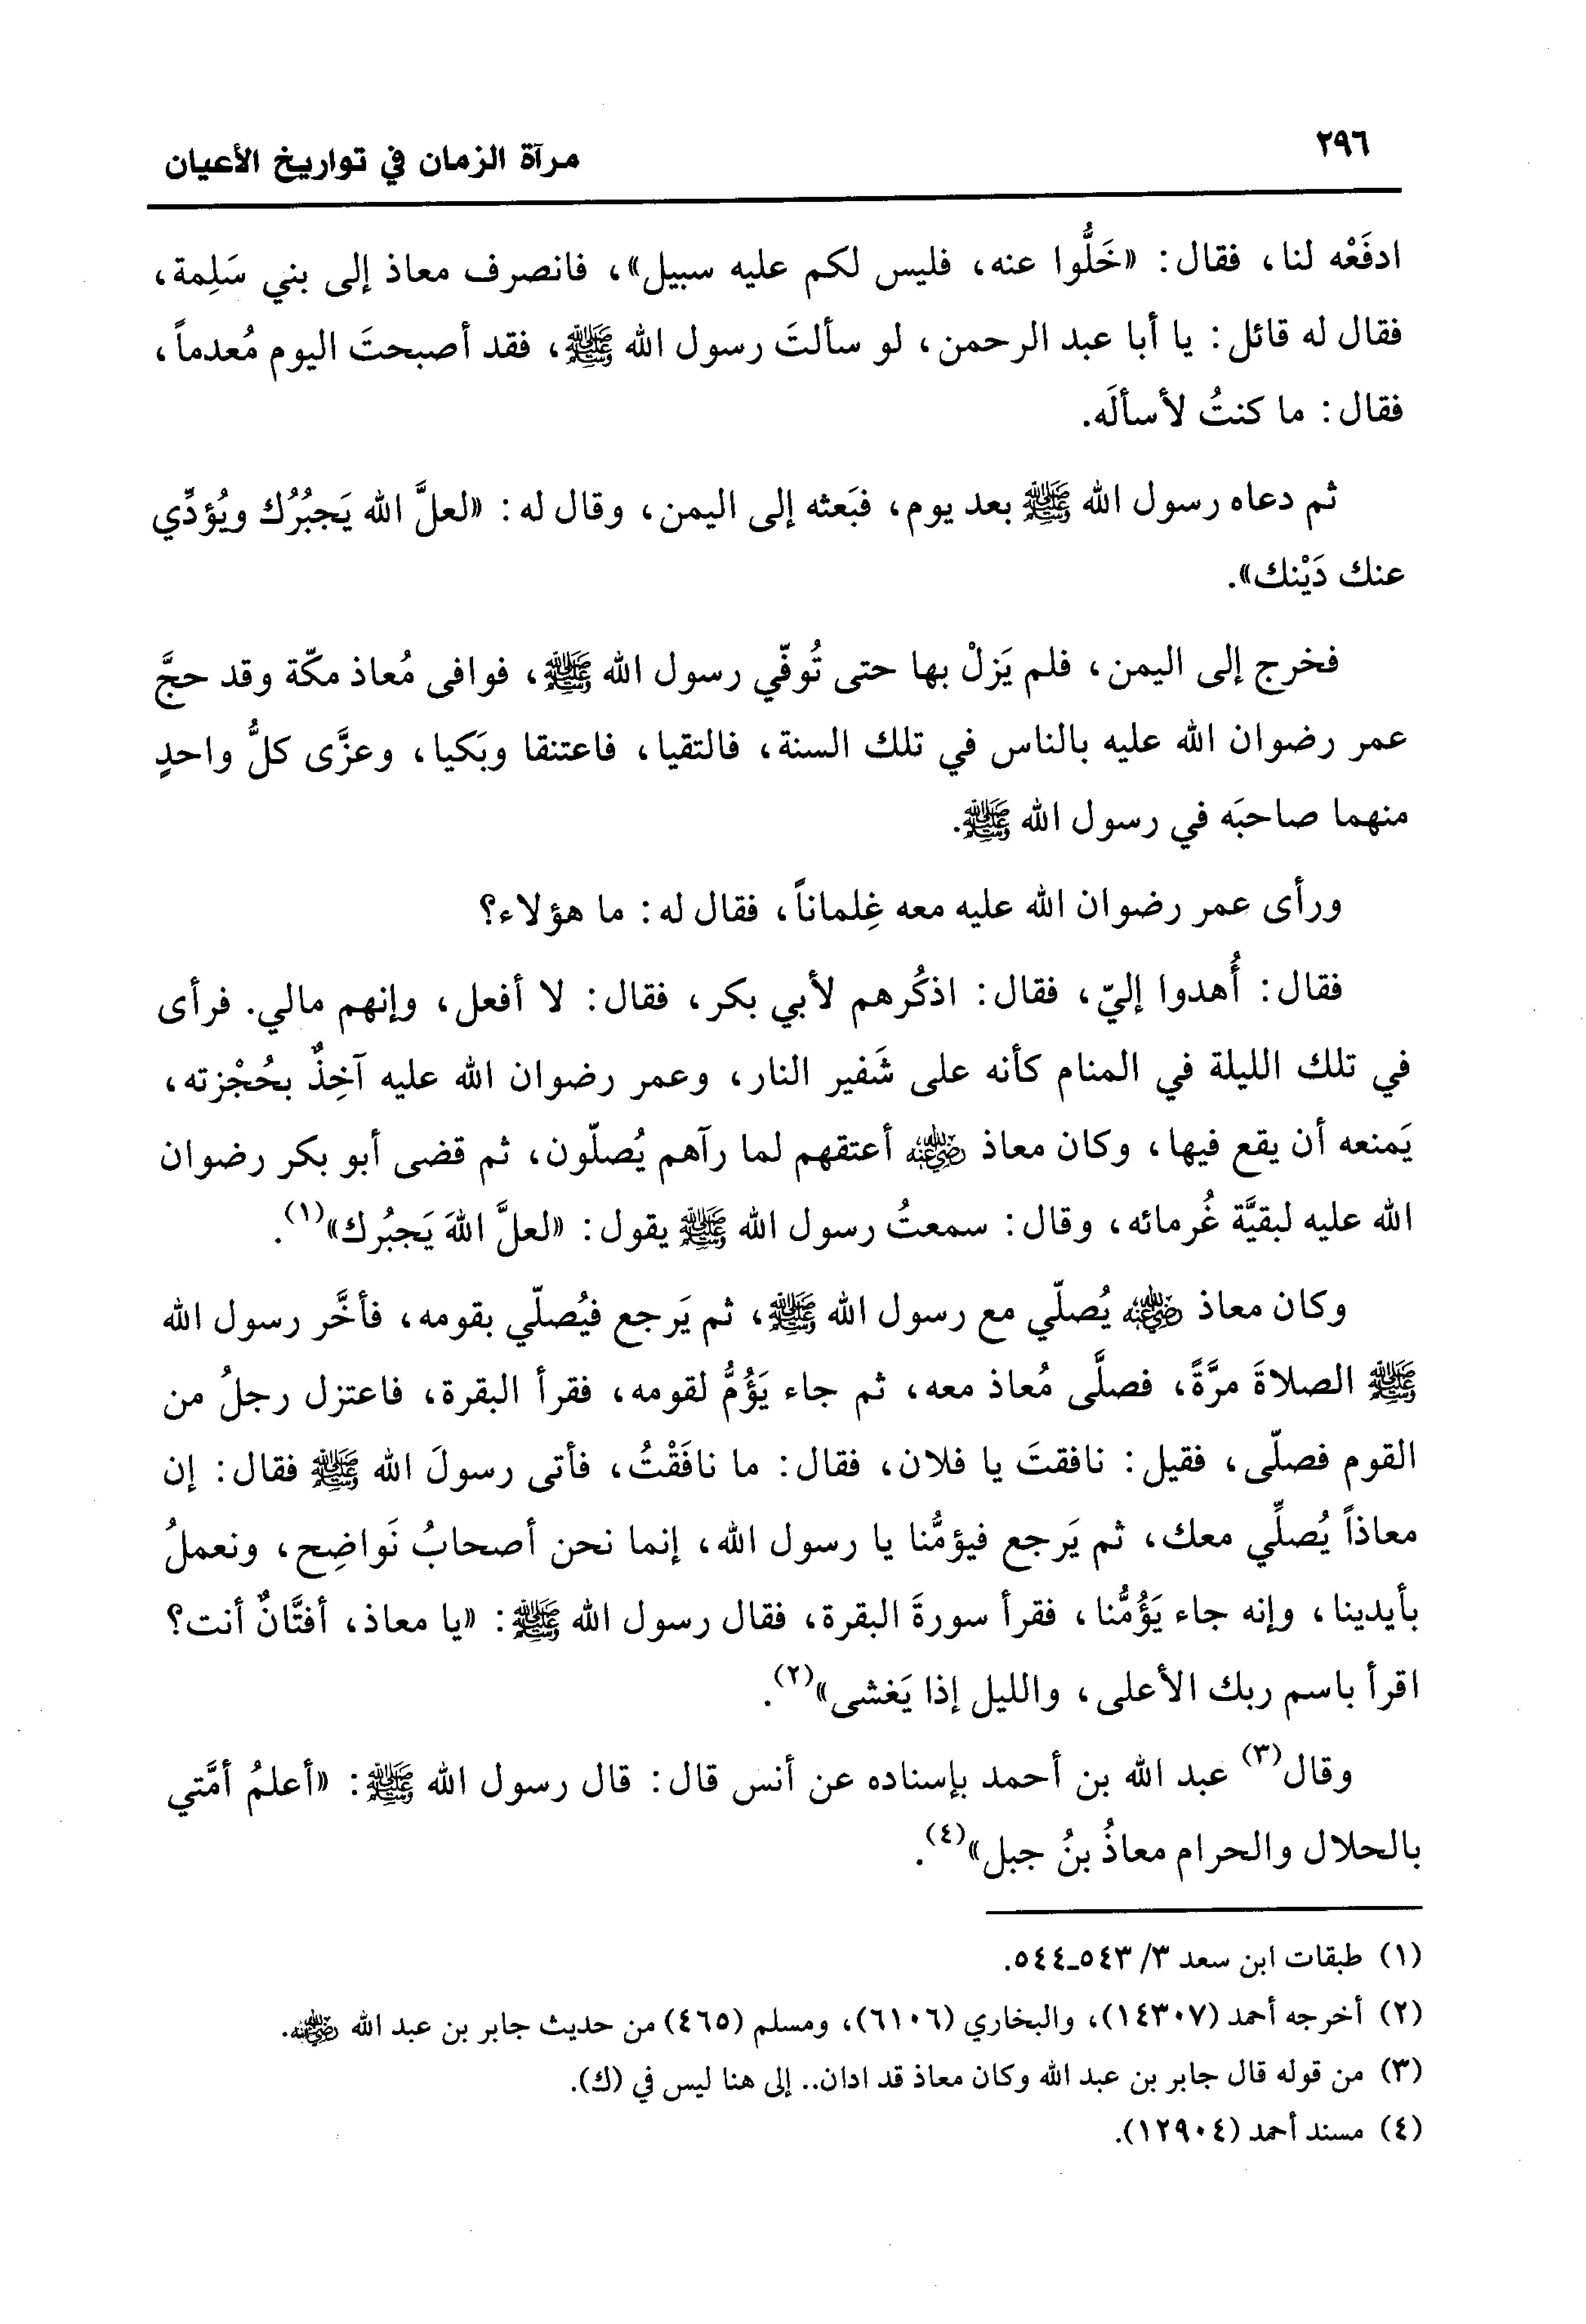 ٢٩٦
مرآة الزمان في تواريخ الأعيان
ادفَعْه لنا، فقال: «خَلُّوا عنه، فليس لكم عليه سبيل»، فانصرف معاذ إلى بني سَلِمة،
فقال له قائل: يا أبا عبد الرحمن، لو سألتَ رسول الله ﷺ، فقد أصبحتَ اليوم مُعدماً،
فقال: ما كنتُ لأسألَه.
ثم دعاه رسول الله ﷺ بعد يوم، فبَعثه إلى اليمن، وقال له: «لعلَّ الله يَجبُرُك ويُؤدِّي
عنك دَيْنك».
فخرج إلى اليمن، فلم يَزلْ بها حتى تُوفّي رسول الله ﷺ، فوافى مُعاذ مكّة وقد حجَّ
عمر رضوان الله عليه بالناس في تلك السنة، فالتقيا، فاعتنقا وبَكيا، وعزَّى كلُّ واحدٍ
منهما صاحبَه في رسول الله ﷺ.
ورأى عمر رضوان الله عليه معه غِلماناً، فقال له: ما هؤلاء؟
فقال: أُهدوا إليّ، فقال: اذكُرهم لأبي بكر، فقال: لا أفعل، وإنهم مالي. فرأى
في تلك الليلة في المنام كأنه على شَفير النار، وعمر رضوان الله عليه آخِذٌ بحُجْزته،
يَمنعه أن يقع فيها، وكان معاذ رضي الله عنه أعتقهم لما رآهم يُصلّون، ثم قضى أبو بكر رضوان
الله عليه لبقيَّة غُرمائه، وقال: سمعتُ رسول الله ﷺ يقول: «لعلَّ اللهَ يَجبُرك»(١).
وكان معاذ رضي الله عنه يُصلّي مع رسول الله ﷺ، ثم يَرجع فيُصلّي بقومه، فأخَّر رسول الله
ﷺ الصلاةَ مرَّةً، فصلَّى مُعاذ معه، ثم جاء يَؤُمُّ لقومه، فقرأ البقرة، فاعتزل رجلُ من
القوم فصلّى، فقيل: نافقتَ يا فلان، فقال: ما نافَقْتُ، فأتى رسولَ الله ﷺ فقال: إن
معاذاً يُصلِّي معك، ثم يَرجع فيؤمُّنا يا رسول الله، إنما نحن أصحابُ نَواضِح، ونعملُ
بأيدينا، وإنه جاء يَؤُمُّنا، فقرأ سورةَ البقرة، فقال رسول الله ﷺ: «يا معاذ، أفتَّانٌ أنت؟
اقرأ باسم ربك الأعلى، والليل إذا يَغشى»(٢).
وقال(٣) عبد الله بن أحمد بإسناده عن أنس قال: قال رسول الله ﷺ: «أعلمُ أمَّتي
بالحلال والحرام معاذُ بنُ جبل»(٤).
(١) طبقات ابن سعد ٣/ ٥٤٣ـ٥٤٤.
(٢) أخرجه أحمد (١٤٣٠٧)، والبخاري (٦١٠٦)، ومسلم (٤٦٥) من حديث جابر بن عبد الله رضي الله عنه.
(٣) من قوله قال جابر بن عبد الله وكان معاذ قد ادان.. إلى هنا ليس في (ك).
(٤) مسند أحمد (١٢٩٠٤).